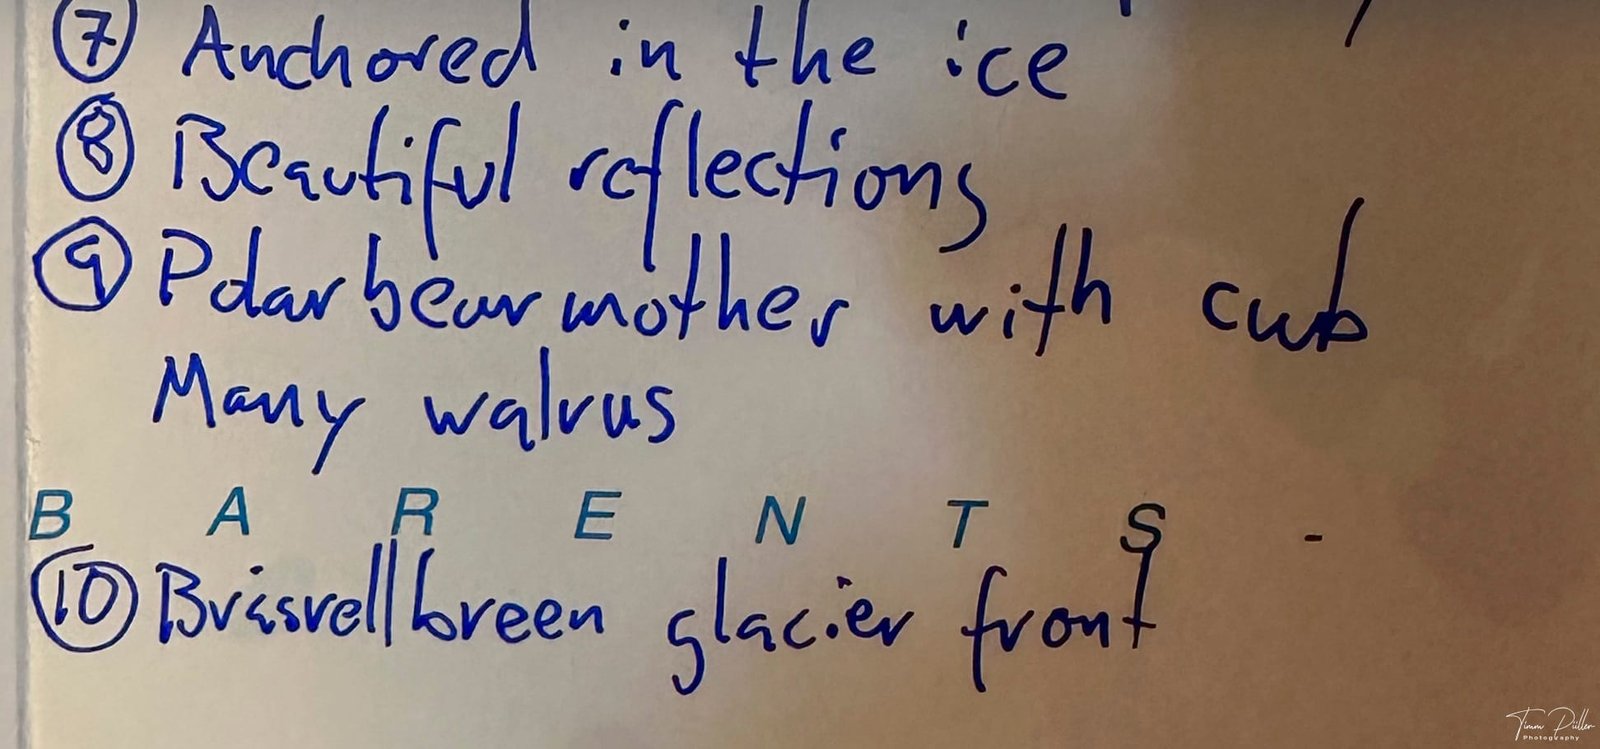 7 Anchored in the ice
8 Beautiful reflections
9 Polar bear mother with cub
Many walrus
B A R E N T S -
10 Bråsvellbreen glacier front
Timm Püllen
Photography